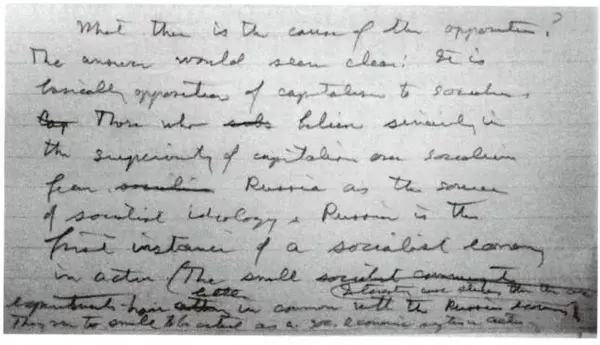 What then is the cause of the opposition?
The answer would seem clear: It is
basically opposition of capitalism to socialism.
Cap Those who subs believe sincerely in
the superiority of capitalism over socialism
fear socialism Russia as the source
of socialist ideology. Russia is the
first instance of a socialist economy
in action (The small socialist community
experiments have little in common with the Russian economy
They are too small to be as a economic system